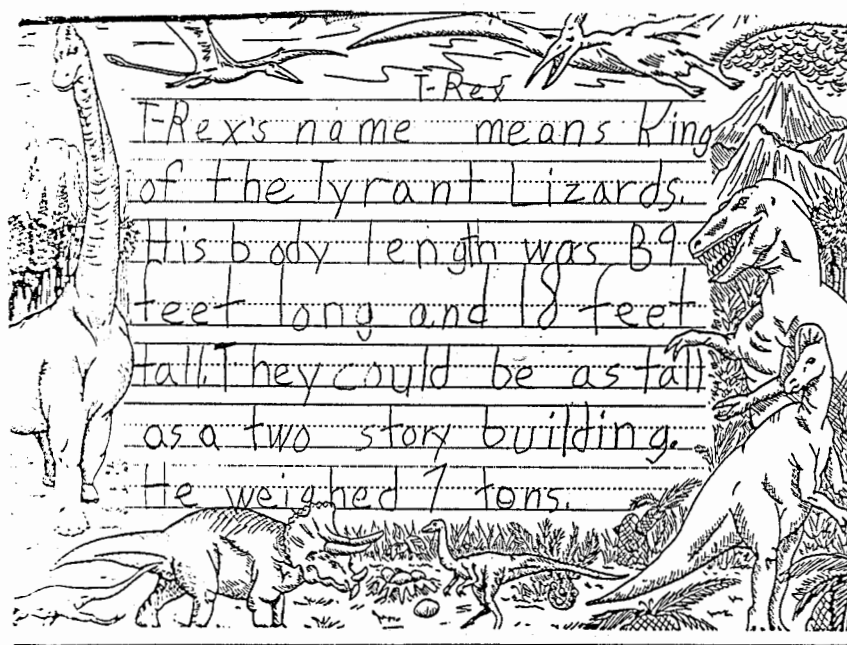 T-Rex
T-Rex's name means King
of the Tyrant Lizards.
His body length was 39
feet long and 18 feet
tall. They could be as tall
as a two story building.
He weighed 7 tons.